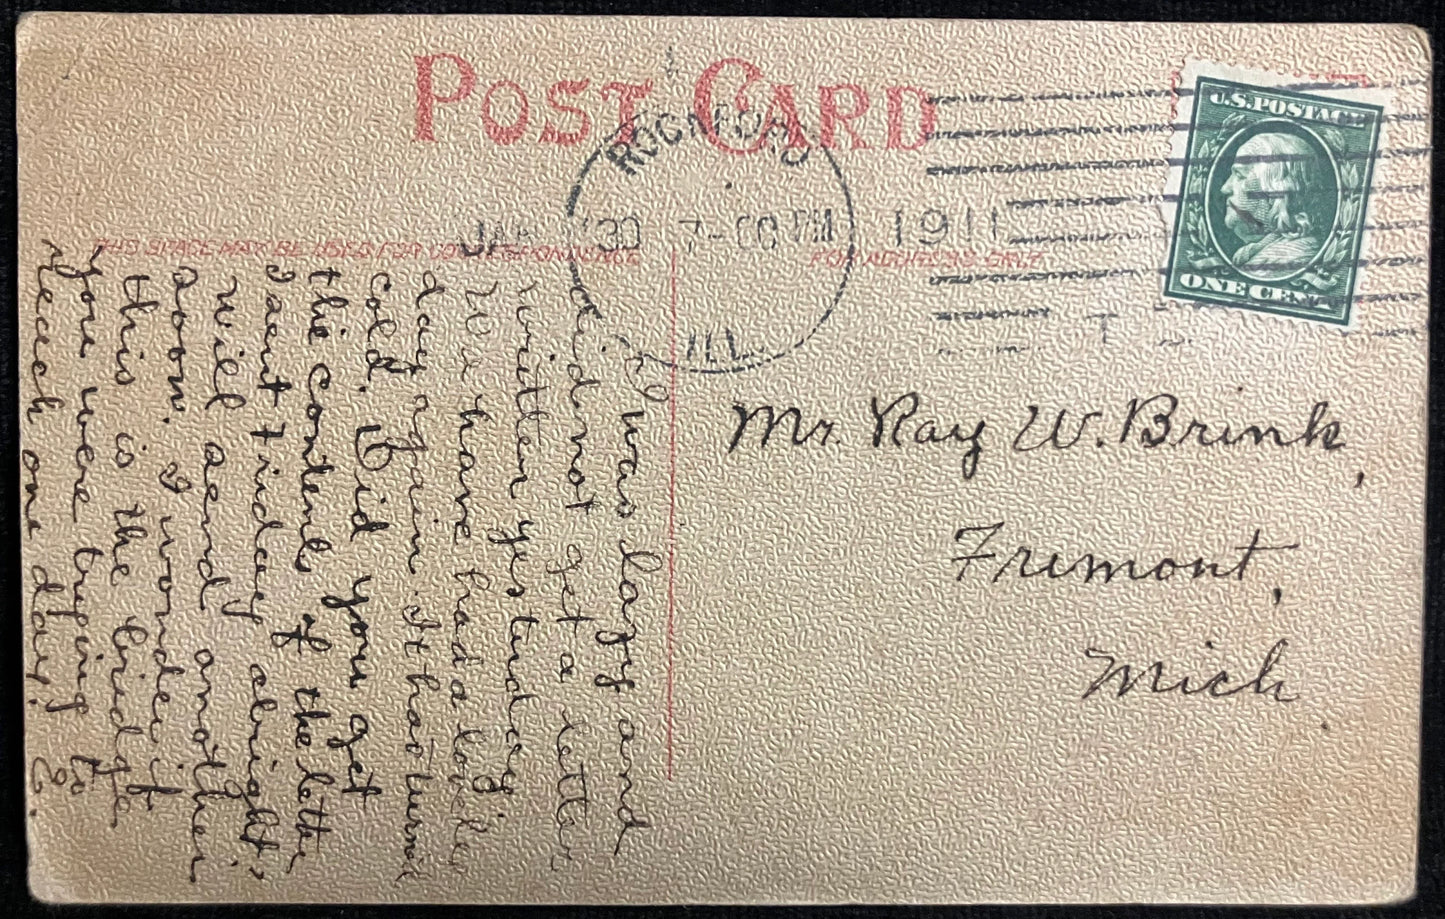 POST CARD
ROCKFORD
JAN 30 7-00 PM 1911
ILL.
U.S. POSTAGE
ONE CENT
THIS SPACE MAY BE USED FOR CORRESPONDENCE
FOR ADDRESS ONLY
I was lazy and
did not get a letter
written yesterday.
We have had a lovely
day again. It has turned
cold. Did you get
the contents of the letter
I sent Friday alright?
Will send another
soon. I wonder if
this is the bridge
you were trying to
reach one day. C.
Mr. Ray W. Brink,
Fremont,
Mich.